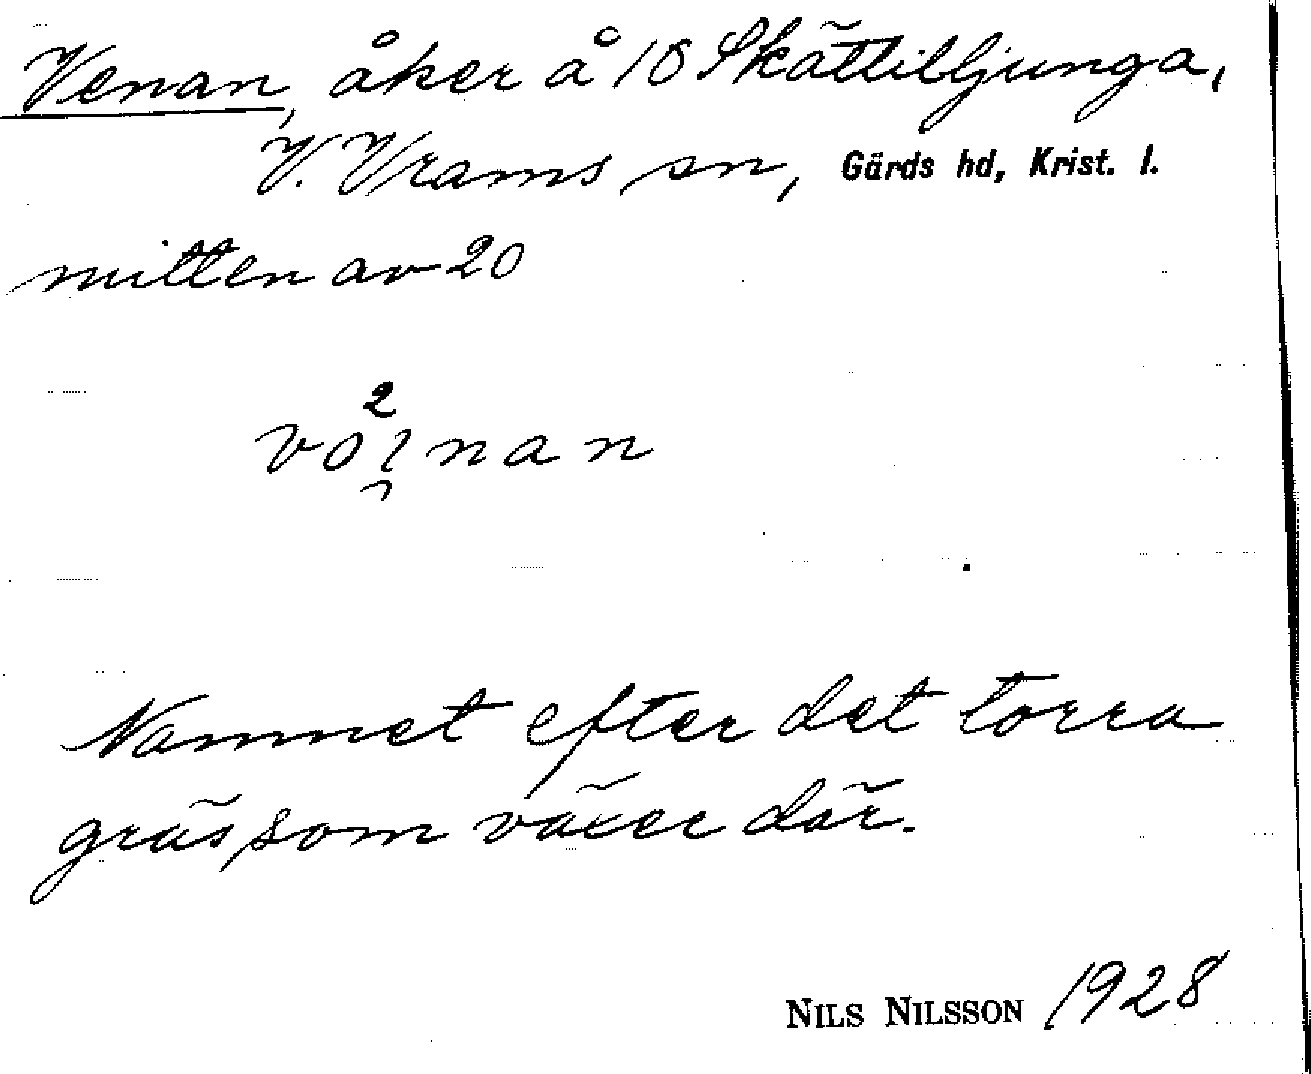 Venan, åker å 10 Skättilljunga,
V. Vrams sn, Gärds hd, Krist. l.
mitten av 20
nan
Namnet efter det torra
gräs som växer där.
NILS NILSSON 1928